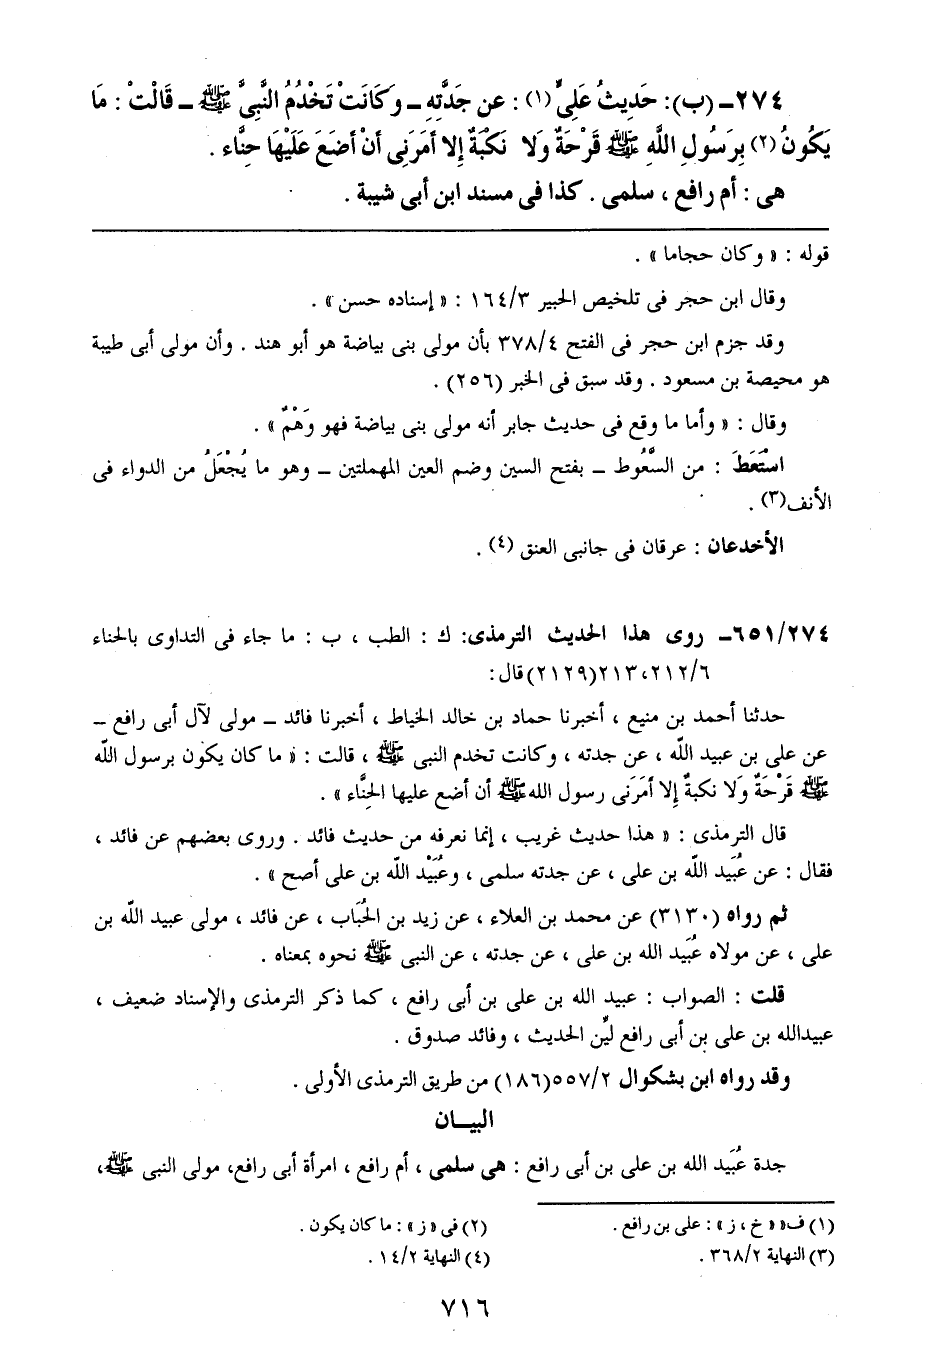 ٢٧٤ـ (ب): حَدِيثُ عَلِىٍّ (١) : عن جَدَّتِهِ ـ وَكَانَتْ تَخْدُمُ النَّبِىَّ ﷺ ـ قَالَتْ : مَا
يَكُونُ (٢) بِرَسُولِ اللَّهِ ﷺ قَرْحَةٌ وَلا نَكْبَةٌ إلا أمَرَنِى أنْ أضَعَ عَلَيْهَا حِنَّاء .
هى : أم رافع ، سلمى . كذا فى مسند ابن أبى شيبة .
قوله : « وكان حجاما » .
وقال ابن حجر فى تلخيص الحبير ١٦٤/٣ : « إسناده حسن » .
وقد جزم ابن حجر فى الفتح ٣٧٨/٤ بأن مولى بنى بياضة هو أبو هند . وأن مولى أبى طيبة
هو محيصة بن مسعود . وقد سبق فى الخبر (٢٥٦) .
وقال : « وأما ما وقع فى حديث جابر أنه مولى بنى بياضة فهو وَهْمٌ » .
اسْتَعَطَ : من السَّعُوط ـ بفتح السين وضم العين المهملتين ـ وهو ما يُجْعَلُ من الدواء فى
الأنف(٣) .
الأخدعان : عرقان فى جانبى العنق (٤) .
٦٥١/٢٧٤ـ روى هذا الحديث الترمذى: ك : الطب ، ب : ما جاء فى التداوى بالحناء
٢١٢/٦، ٢١٣(٢١٢٩) قال:
حدثنا أحمد بن منيع ، أخبرنا حماد بن خالد الخياط ، أخبرنا فائد ـ مولى لآل أبى رافع ـ
عن على بن عبيد اللَّه ، عن جدته ، وكانت تخدم النبى ﷺ ، قالت : « ما كان يكون برسول اللَّه
ﷺ قَرْحَةٌ وَلا نكبةٌ إلا أمَرَنى رسول الله ﷺ أن أضع عليها الحِنَّاء » .
قال الترمذى : « هذا حديث غريب ، إنما نعرفه من حديث فائد . وروى بعضهم عن فائد ،
فقال : عن عُبَيد اللَّه بن على ، عن جدته سلمى ، وعُبَيْد اللَّه بن على أصح » .
ثم رواه (٣١٣٠) عن محمد بن العلاء ، عن زيد بن الحُبَاب ، عن فائد ، مولى عبيد اللَّه بن
على ، عن مولاه عُبَيد الله بن على ، عن جدته ، عن النبى ﷺ نحوه بمعناه .
قلت : الصواب : عبيد الله بن على بن أبى رافع ، كما ذكر الترمذى والإسناد ضعيف ،
عبيدالله بن على بن أبى رافع ليِّن الحديث ، وفائد صدوق .
وقد رواه ابن بشكوال ٥٥٧/٢(١٨٦) من طريق الترمذى الأولى .
البيـــان
جدة عُبَيد الله بن على بن أبى رافع : هى سلمى ، أم رافع ، امرأة أبى رافع، مولى النبى ﷺ،
(١) فـ« « خ ، ز » : على بن رافع .
(٢) فى « ز » : ما كان يكون .
(٣) النهاية ٣٦٨/٢ .
(٤) النهاية ١٤/٢ .
٧١٦